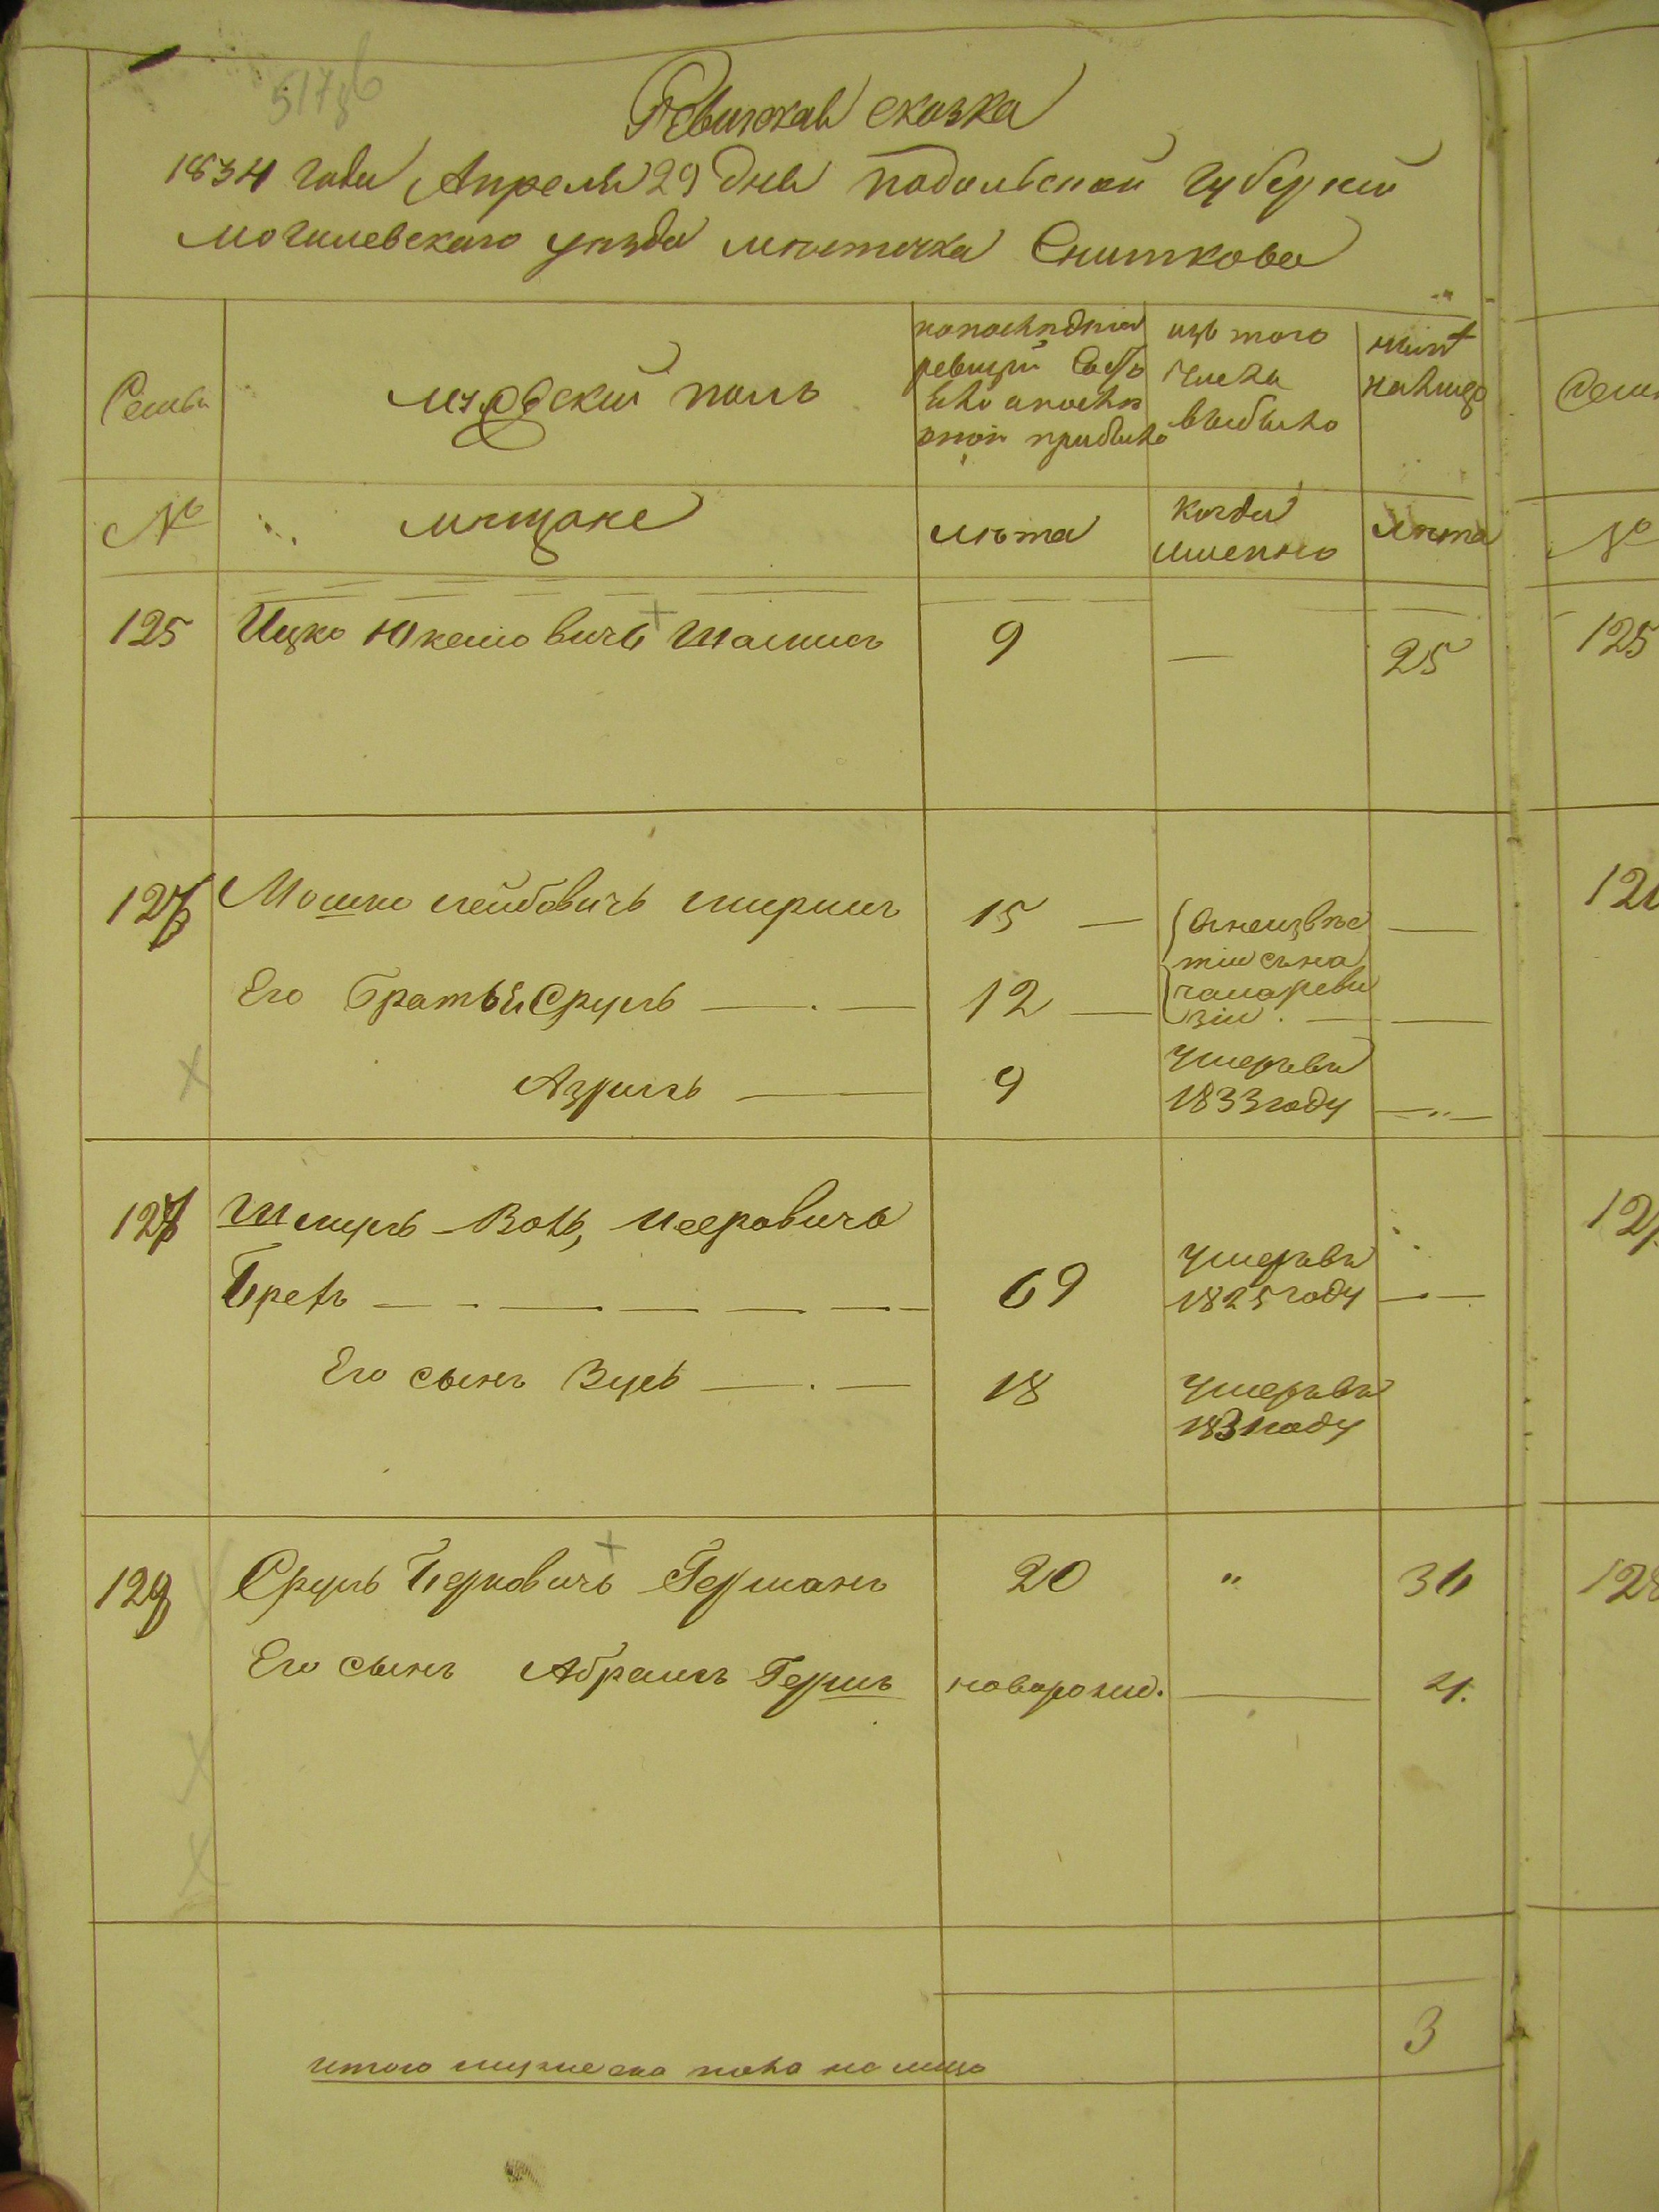 517
Ревизская сказка
1834 года Апреля 29 дня Подольской губернии
могилевского уезда местечка Сниткова
Семьи
мужеский полъ
по последней
ревизии состо
яло и после
оной прибыло
изъ того
числа
выбыло
ныне
на лицо
Семьи
№
мещане
лета
когда
именно
лета
№
125 Ицко Юкелиовичъ Шалимъ 9 — 25
125
127 Мошко лейбовичъ 15 —
Его Братья Сруль — . — 12 —
въ неизвес
тии съ на
чала реви
зии . — —
Азриль — 9 умеръ въ
1833 году — „ —
127 Шмуль-Воль, Мееровичъ
Бретъ — — — — — — 69 умеръ въ
1825 году — —
Его сынъ Зусь — . — 18 умеръ въ
1831 году
129 Сруль Берковичъ Германъ 20 „ 36
128
Его сынъ Абрамъ Гершъ новорожд. — 4.
3
итого мужеска пола на лицо